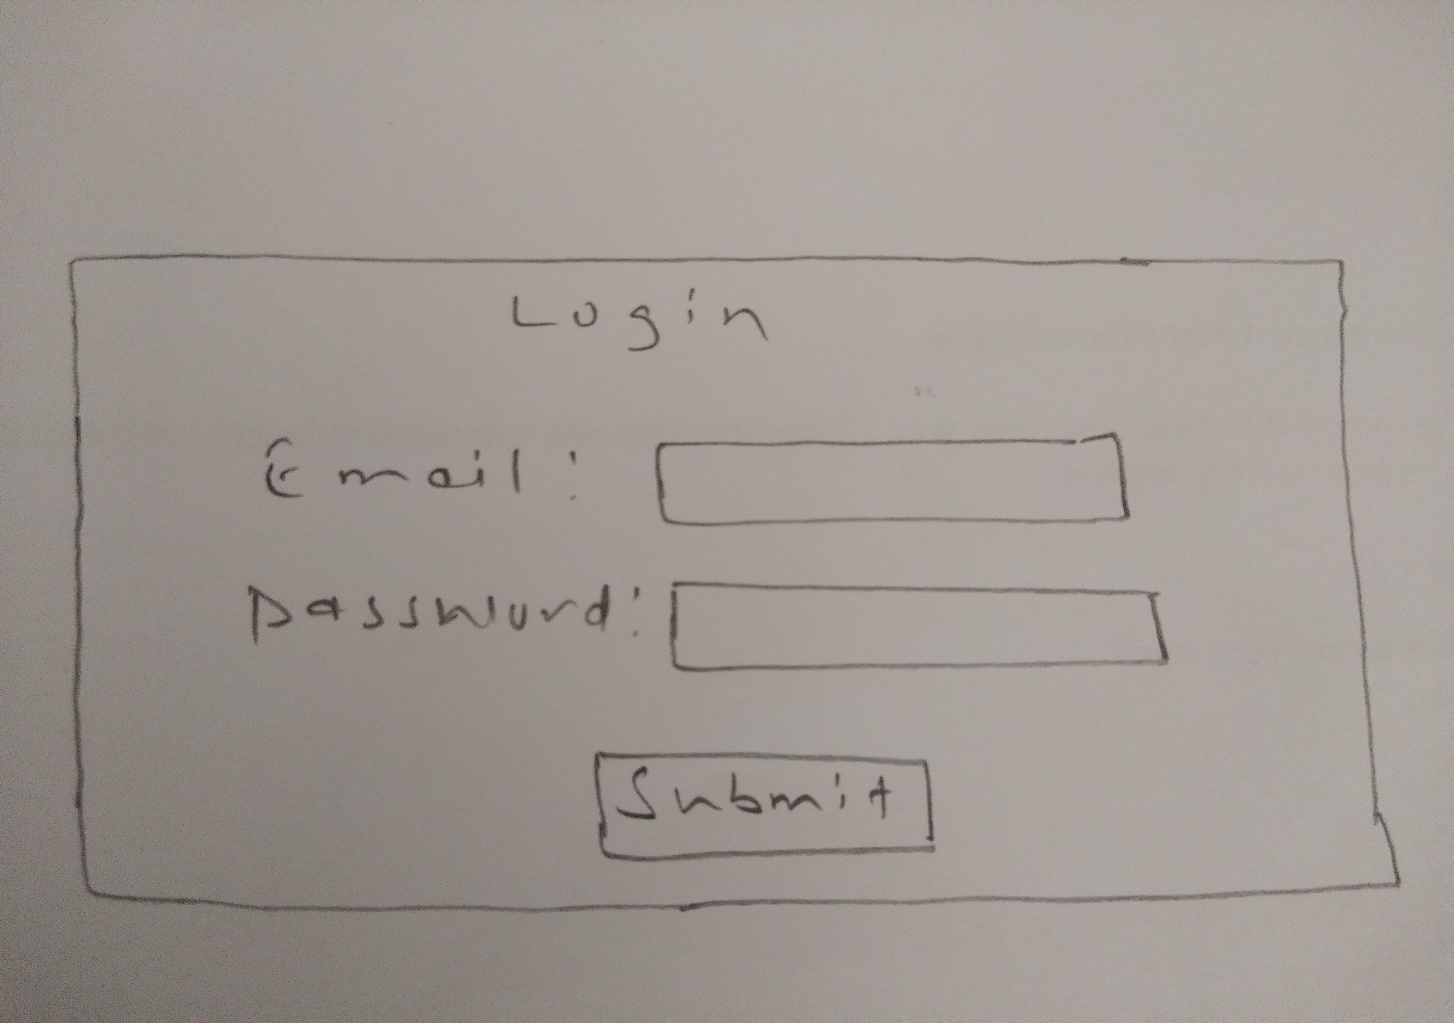 Login
Email:
password:
Submit